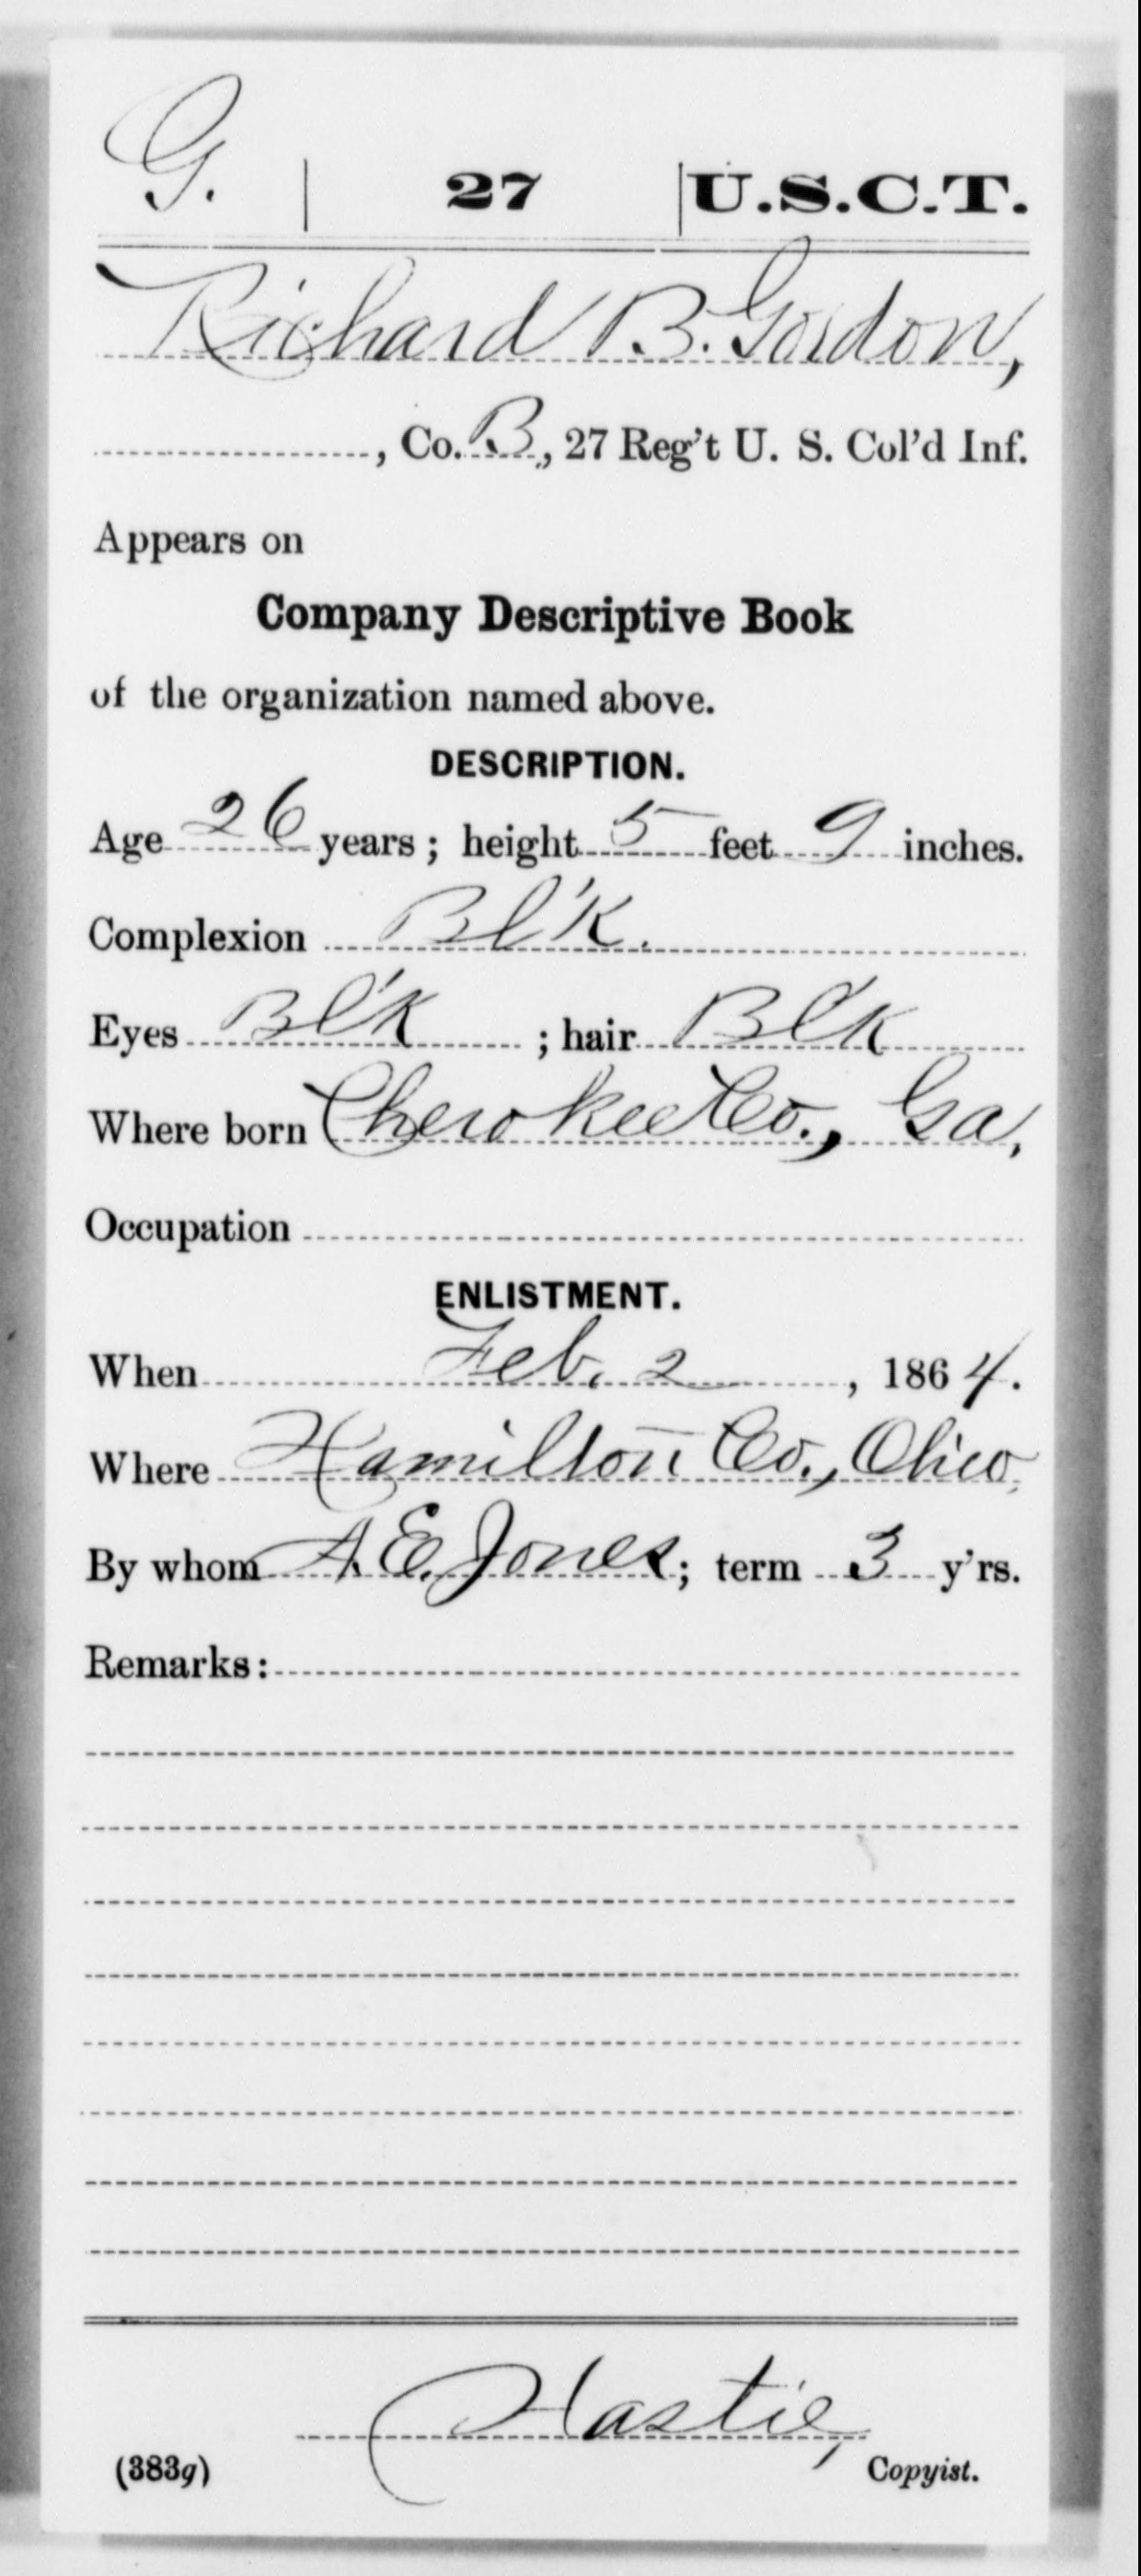 G. | 27 | U.S.C.T.
Richard B. Gordon,
, Co. B., 27 Reg't U. S. Col'd Inf.
Appears on
Company Descriptive Book
of the organization named above.
DESCRIPTION.
Age 26 years; height 5 feet 9 inches.
Complexion Bl'k.
Eyes Bl'k ; hair Bl'k
Where born Cherokee Co., Ga,
Occupation
ENLISTMENT.
When Feb. 2, 1864.
Where Hamilton Co., Ohio,
By whom A. E. Jones; term 3 y'rs.
Remarks:
Hastie,
(383g) Copyist.